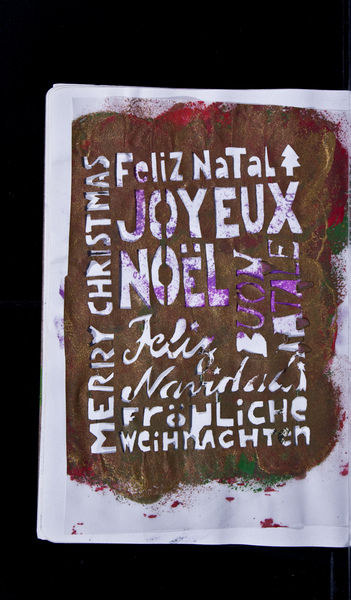 MERRY CHRISTMAS
FeliZ NaTal
JOYEUX
NOËL
BUON
NATALE
Feliz
Navidad
FRÖHLICHE
WEIHNACHTEN